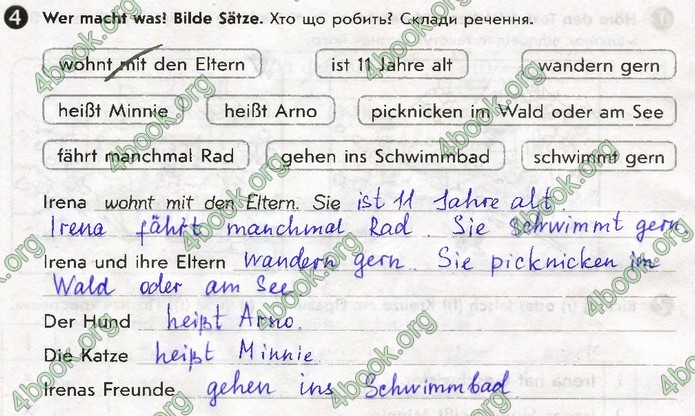 4 Wer macht was? Bilde Sätze. Хто що робить? Склади речення.
wohnt mit den Eltern ist 11 Jahre alt wandern gern
heißt Minnie heißt Arno picknicken im Wald oder am See
fährt manchmal Rad gehen ins Schwimmbad schwimmt gern
Irena wohnt mit den Eltern. Sie ist 11 Jahre alt
Irena fährt manchmal Rad. Sie schwimmt gern
Irena und ihre Eltern wandern gern. Sie picknicken im
Wald oder am See
Der Hund heißt Arno.
Die Katze heißt Minnie.
Irenas Freunde gehen ins Schwimmbad
4book.org